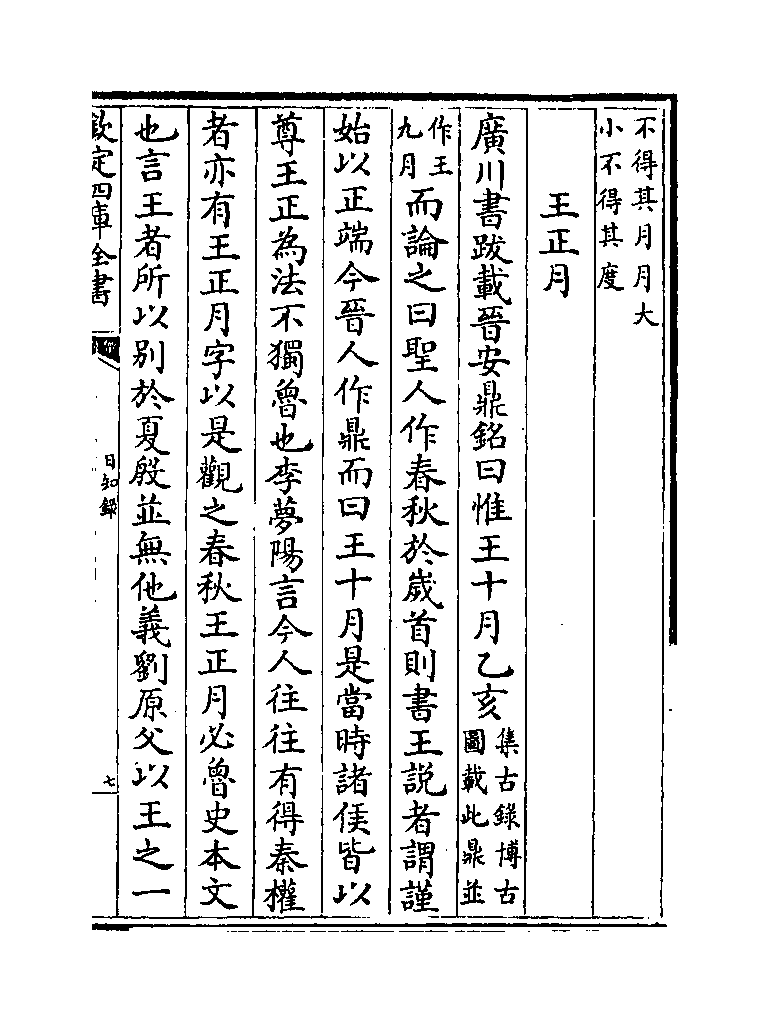 不得其月月大
小不得其度
王正月
廣川書跋載晉安鼎銘曰惟王十月乙亥集古錄博古
圖載此鼎並
作王
九月而論之曰聖人作春秋於歲首則書王説者謂謹
始以正端今晉人作鼎而曰王十月是當時諸侯皆以
尊王正為法不獨魯也李夢陽言今人往往有得秦權
者亦有王正月字以是觀之春秋王正月必魯史本文
也言王者所以別於夏殷並無他義劉原父以王之一
欽定四庫全書
日知錄
七